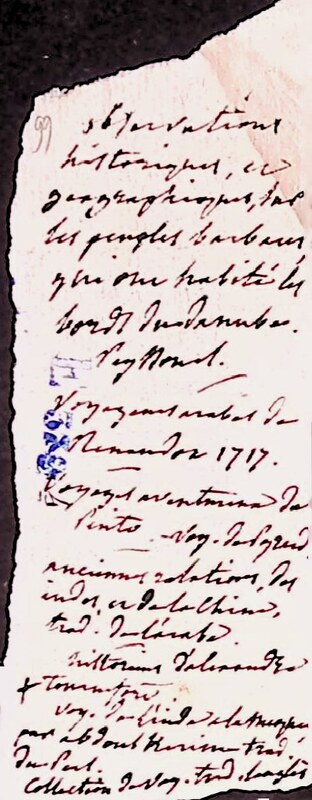 99
observations
historiques, et
geographiques, sur
les peuples barbares
qui ont habité les
bords du danube.
Peyssonel.
Voyageurs arabes de
Renaudon 1717.
Voyages aventureux de
Pinto. - Voy. de Pyrard
anciennes relations, des
indes, et de la Chine,
trad. de l'arabe.
historiens d'alexandre
+ tournefort
voy. de l'inde a la mecque
par abdoul Kerime trad.
du Pers.
Collection de Voy. trad. langlès